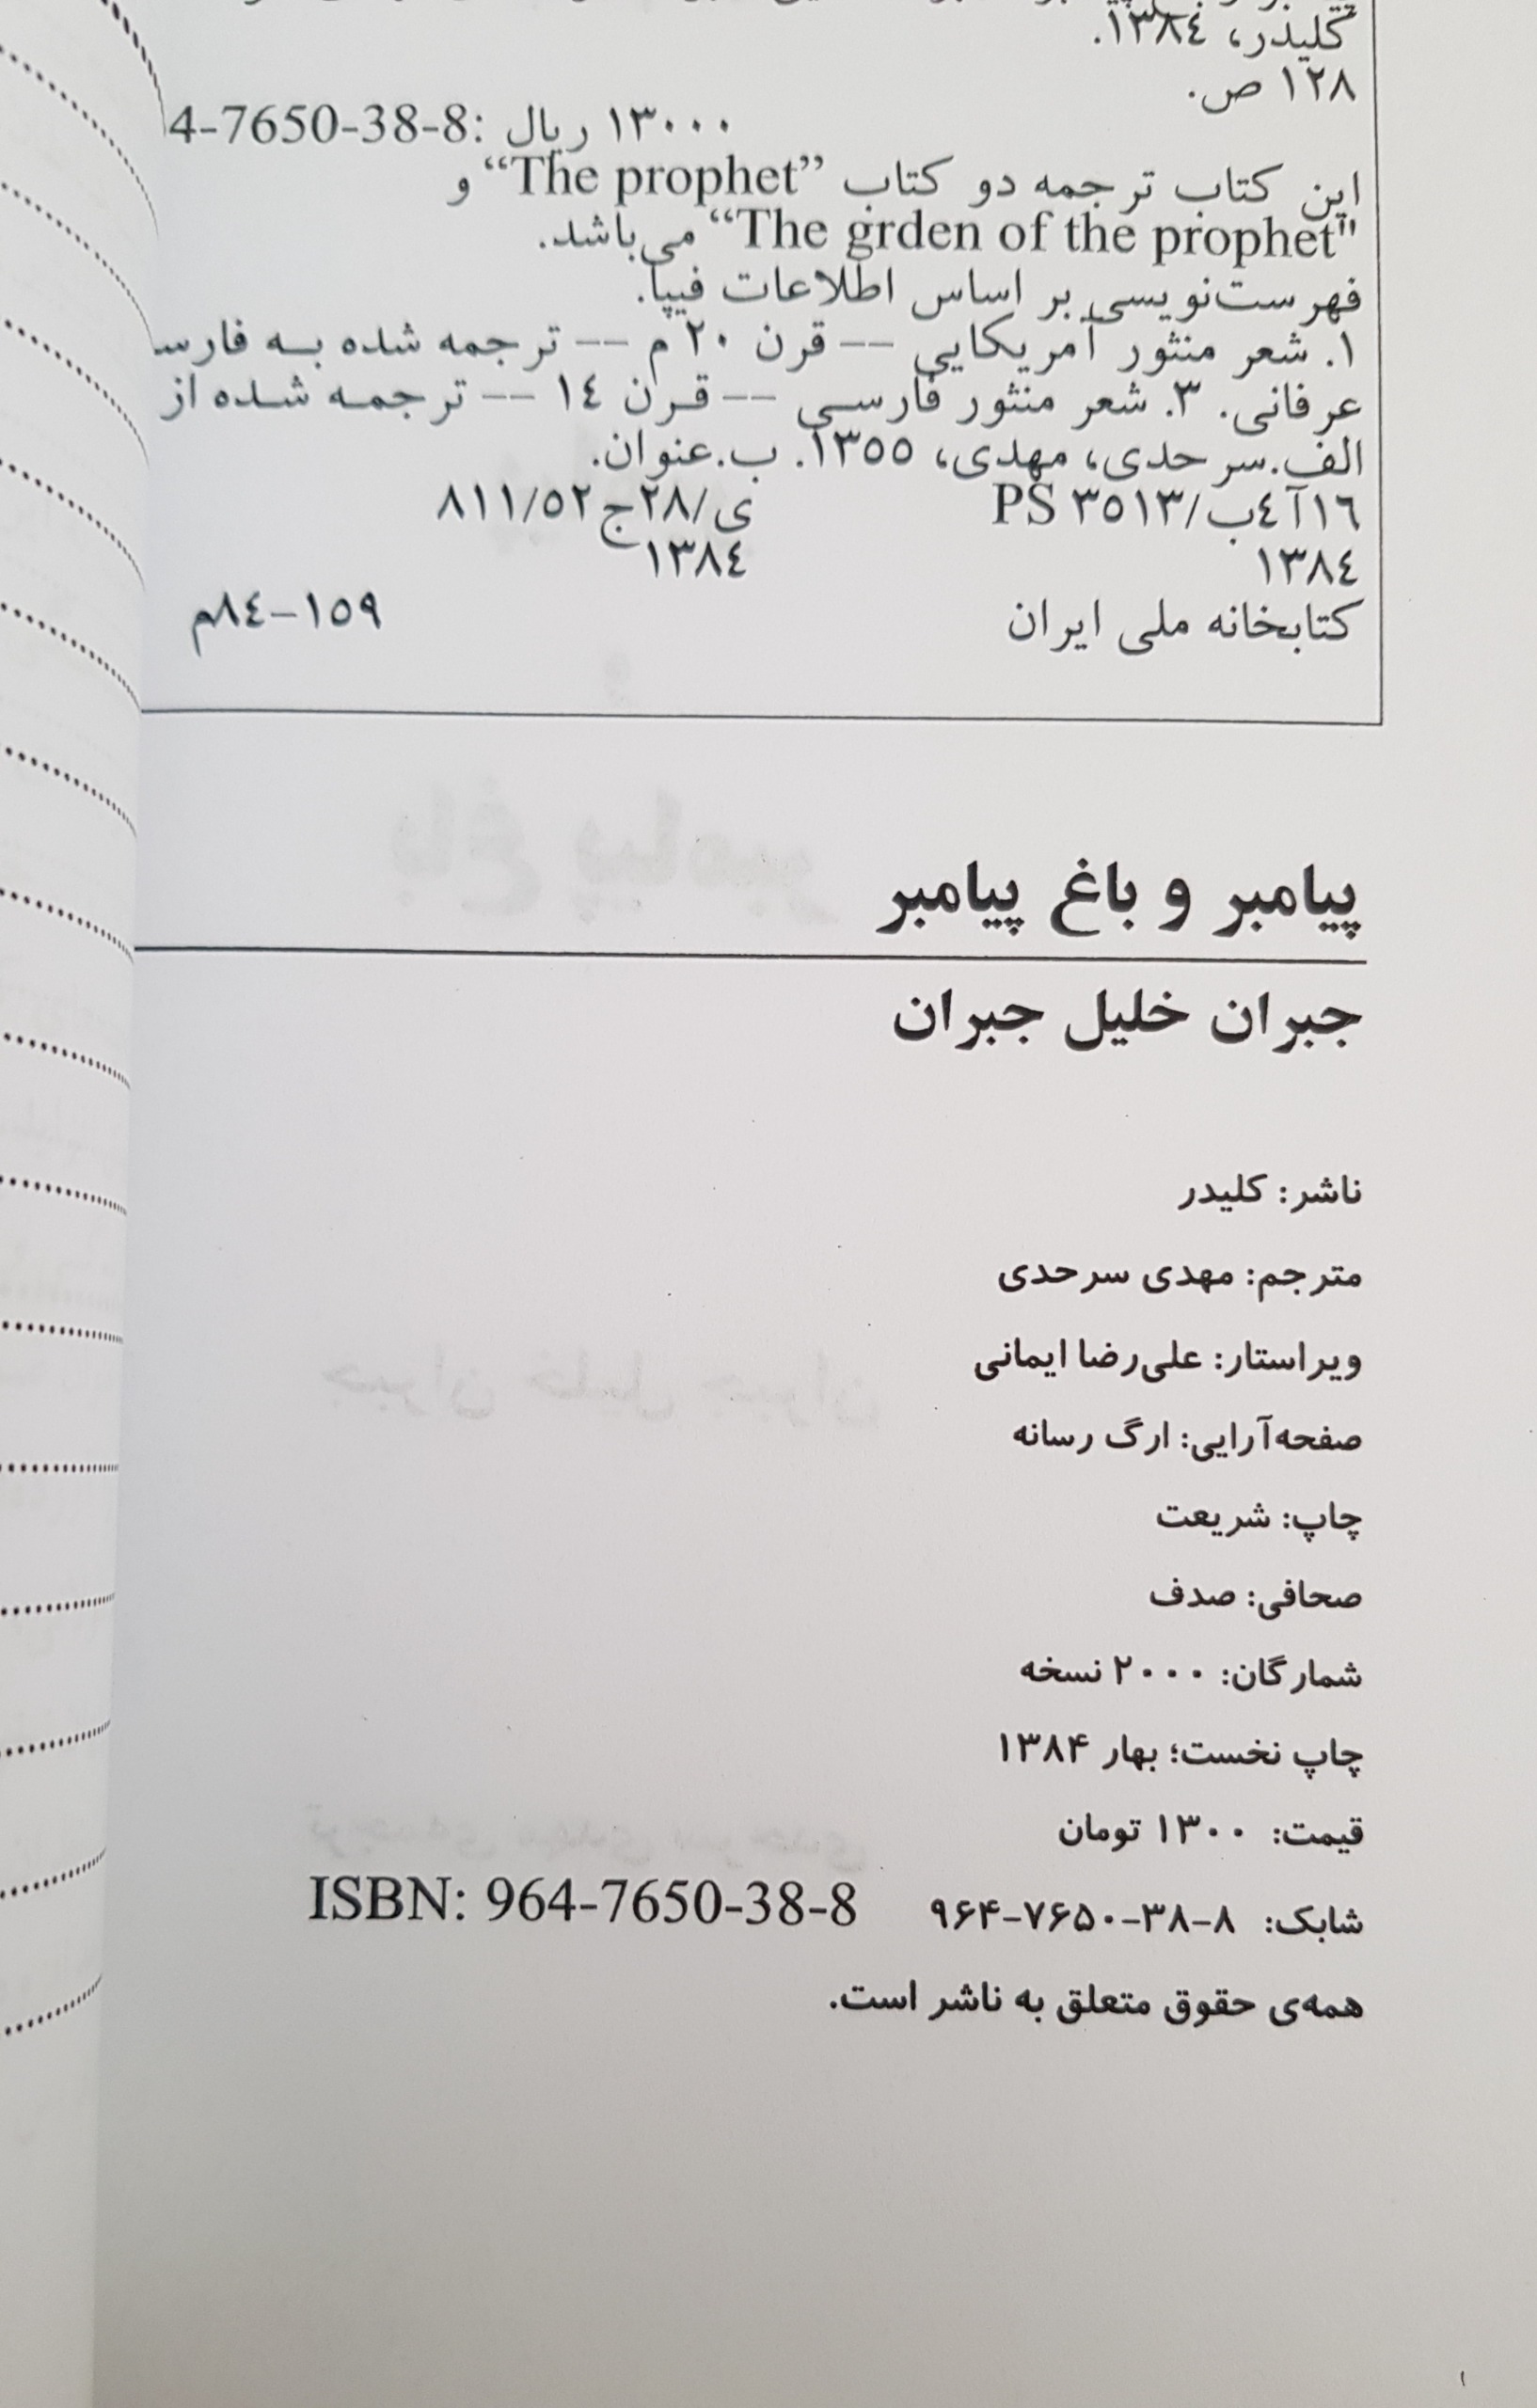 کلیدر، ١٣٨٤.
١٢٨ ص.
١٣٠٠٠ ریال :4-7650-38-8
این کتاب ترجمه دو کتاب “The prophet” و
"The grden of the prophet“ می‌باشد.
فهرست‌نویسی بر اساس اطلاعات فیپا.
١. شعر منثور آمریکایی -- قرن ٢٠ م -- ترجمه شده به
عرفانی. ٣. شعر منثور فارسی -- قرن ١٤ -- ترجمه شده از
الف.سرحدی، مهدی، ١٣٥٥. ب.عنوان.
١٦آ٤ب/٣٥١٣ PS ی/٢٨ج٨١١/٥٢
١٣٨٤ ١٣٨٤
کتابخانه ملی ایران ١٥٩-٨٤م
پیامبر و باغ پیامبر
جبران خلیل جبران
ناشر: کلیدر
مترجم: مهدی سرحدی
ویراستار: علی‌رضا ایمانی
صفحه‌آرایی: ارگ رسانه
چاپ: شریعت
صحافی: صدف
شمارگان: ۲۰۰۰ نسخه
چاپ نخست؛ بهار ۱۳۸۴
قیمت: ۱۳۰۰ تومان
شابک: ۸-۳۸-۷۶۵۰-۹۶۴ ISBN: 964-7650-38-8
همه‌ی حقوق متعلق به ناشر است.